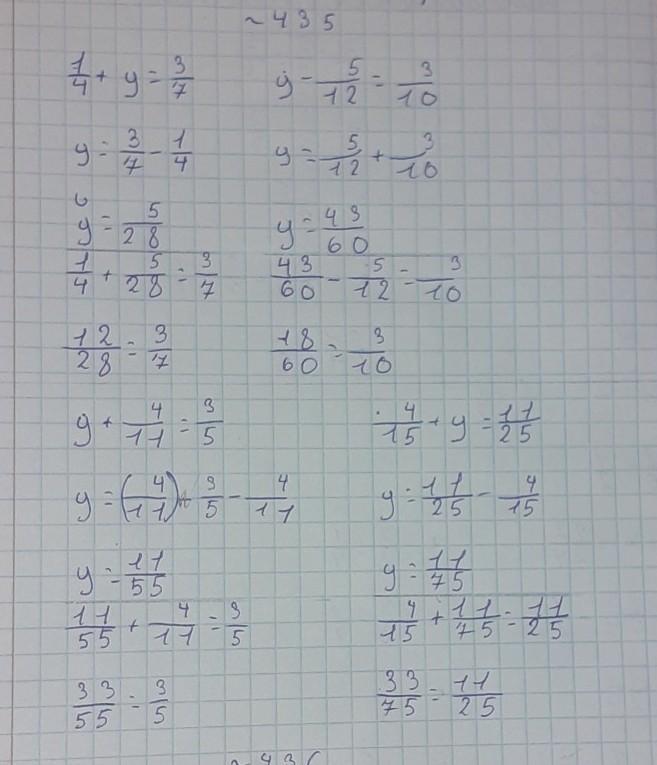 ~ 435
1/4 + y = 3/7
y = 3/7 - 1/4
y = 5/28
1/4 + 5/28 = 3/7
12/28 = 3/7
y - 5/12 = 3/10
y = 5/12 + 3/10
y = 43/60
43/60 - 5/12 = 3/10
18/60 = 3/10
y + 4/11 = 3/5
y = (4/11) 3/5 - 4/11
y = 11/55
11/55 + 4/11 = 3/5
33/55 = 3/5
4/15 + y = 11/25
y = 11/25 - 4/15
y = 11/75
4/15 + 11/75 = 11/25
33/75 = 11/25